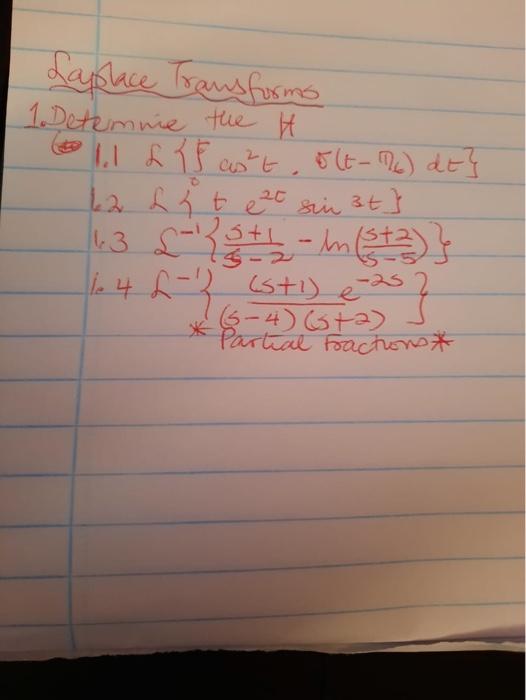 Laplace Transforms
1. Determine the H
1.1 L {∫₀ᵗ cos²t . δ(t - π/6) dt}
1.2 L { t e^2t sin 3t }
1.3 L⁻¹ { (s+1)/(s-2) - ln((s+2)/(s-5)) }
1.4 L⁻¹ { (s+1) e^-2s / (s-4)(s+2) }
* Partial fractions *